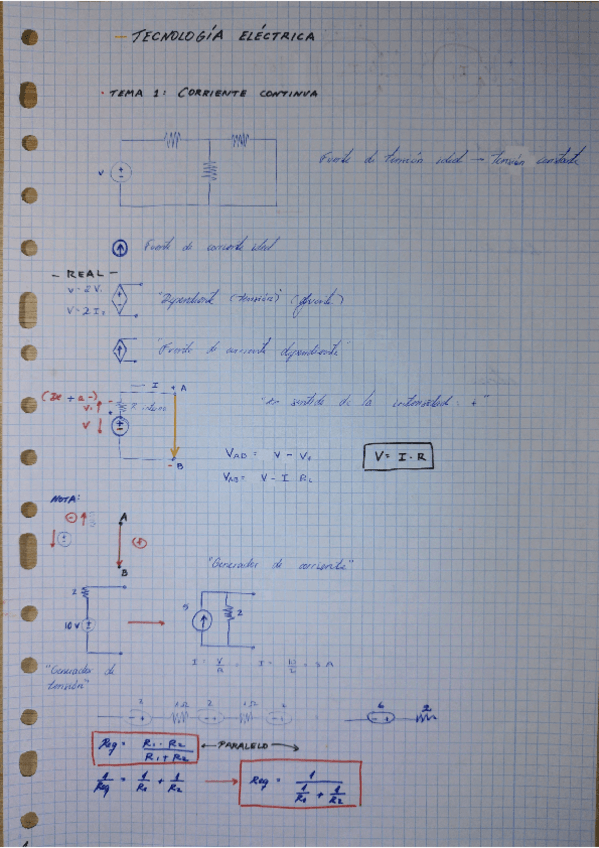 - TECNOLOGÍA ELÉCTRICA
· TEMA 1: CORRIENTE CONTINUA
V
Fuente de tensión ideal → tensión constante
Fuente de corriente ideal
- REAL -
V=2V
V=2I
"Dependiente (tensión) (fuente)
"Fuente de corriente dependiente"
I + A
(De + a -)
V R interno
V
- B
"en sentido de la intensidad: +"
V = V - V
V = V - I R
V = I · R
NOTA:
- A
+
B
"Generador de corriente"
2
10 V
5 2
"Generador de tensión"
I = V/R ; I = 10/2 = 5 A
2 1Ω 2 1Ω 2
6 2
Req = R1 · R2 / R1 + R2 ← PARALELO →
1/Req = 1/R1 + 1/R2 → Req = 1 / 1/R1 + 1/R2